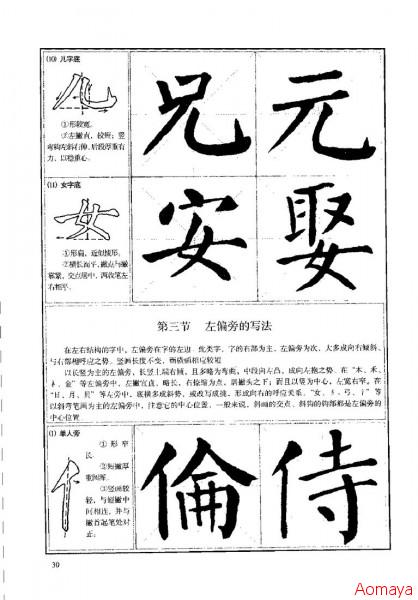 (10) 儿字底
①形较宽。
②左撇直，较短；竖
弯钩左斜右伸，后段厚重右
力，以稳重心。
兄 元
(11) 女字底
①形扁，近似梯形。
②横长而平，撇点与撇
紧，交点居中，两段笔左
右相平。
安 娶
第三节 左偏旁的写法
在左右结构的字中，左偏旁在字的左边
字的右部为主，左偏旁为次，大多成向右倾斜、
与右部相呼应之势。竖画长度不变，横画稍相应较短
以长竖为主的左偏旁，长竖上端右倾，且多略为弯曲，中段向左凸，成向左抱之势。在“木、禾、
金”等左偏旁中，左撇宜直，略长，右捺缩为点，居撇头之下；而且以竖为中心，左宽右窄。在
“日、月、贝”等左偏旁中，底横多成斜势，或改写成挑，形成向右的呼应关系。“女、
以斜弯笔画为主的左偏旁中，注意它的中心位置，一般来说，斜画的交点、斜钩的钩部都是左偏旁的
中心位置
(1) 单人旁
①形窄
长。
②短撇厚
重
③竖画较
轻，与短撇中
间相连，并与
撇首起笔处对
正。
倫 侍
30
Aomaya